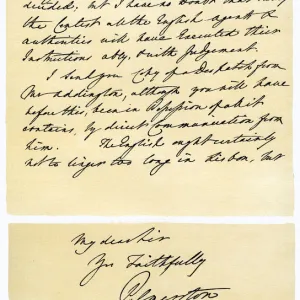 decided; but I have no doubt that
the Contest all the English agents &
authorities will have Executed their
Instructions ably, & with Judgement.
I send you Copy of a Despatch from
Mr Addington, although you will have
before this, been in Possession of what it
contains, by direct Communication from
him. The English ought certainly
not to linger too long in Lisbon, but
My dear Sir
Yrs Faithfully
Palmerston